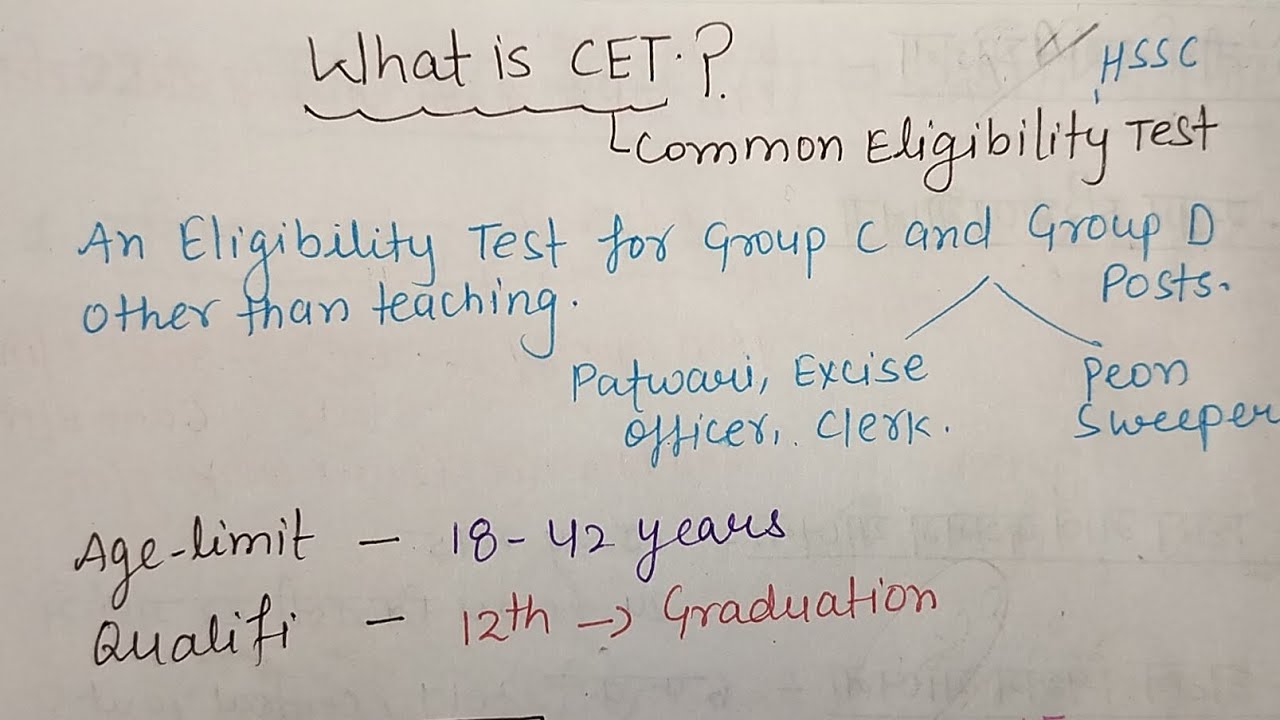 What is CET.?
HSSC
Common Eligibility Test
An Eligibility Test for Group C and Group D
Posts.
other than teaching.
Patwari, Excise
officer, Clerk.
Peon
Sweeper
Age-limit - 18-42 years
Qualifi - 12th → Graduation